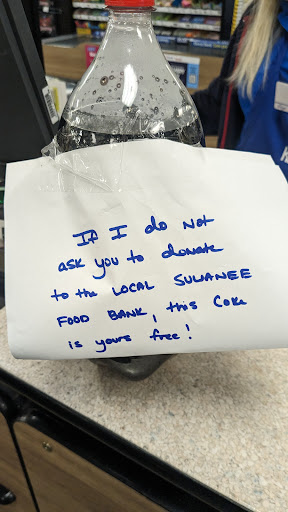 If I do Not
ask you to donate
to the LOCAL SUWANEE
FOOD BANK, this Coke
is yours free!